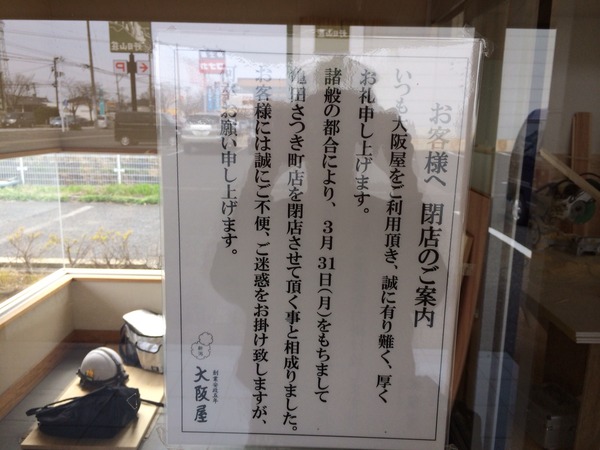 お客様へ 閉店のご案内
いつも大阪屋をご利用頂き、誠に有り難く、厚く
お礼申し上げます。
諸般の都合により、3月31日(月)をもちまして
亀田さつき町店を閉店させて頂く事と相成りました。
お客様には誠にご不便、ご迷惑をお掛け致しますが、
お願い申し上げます。
創業安政五年
大阪屋
P